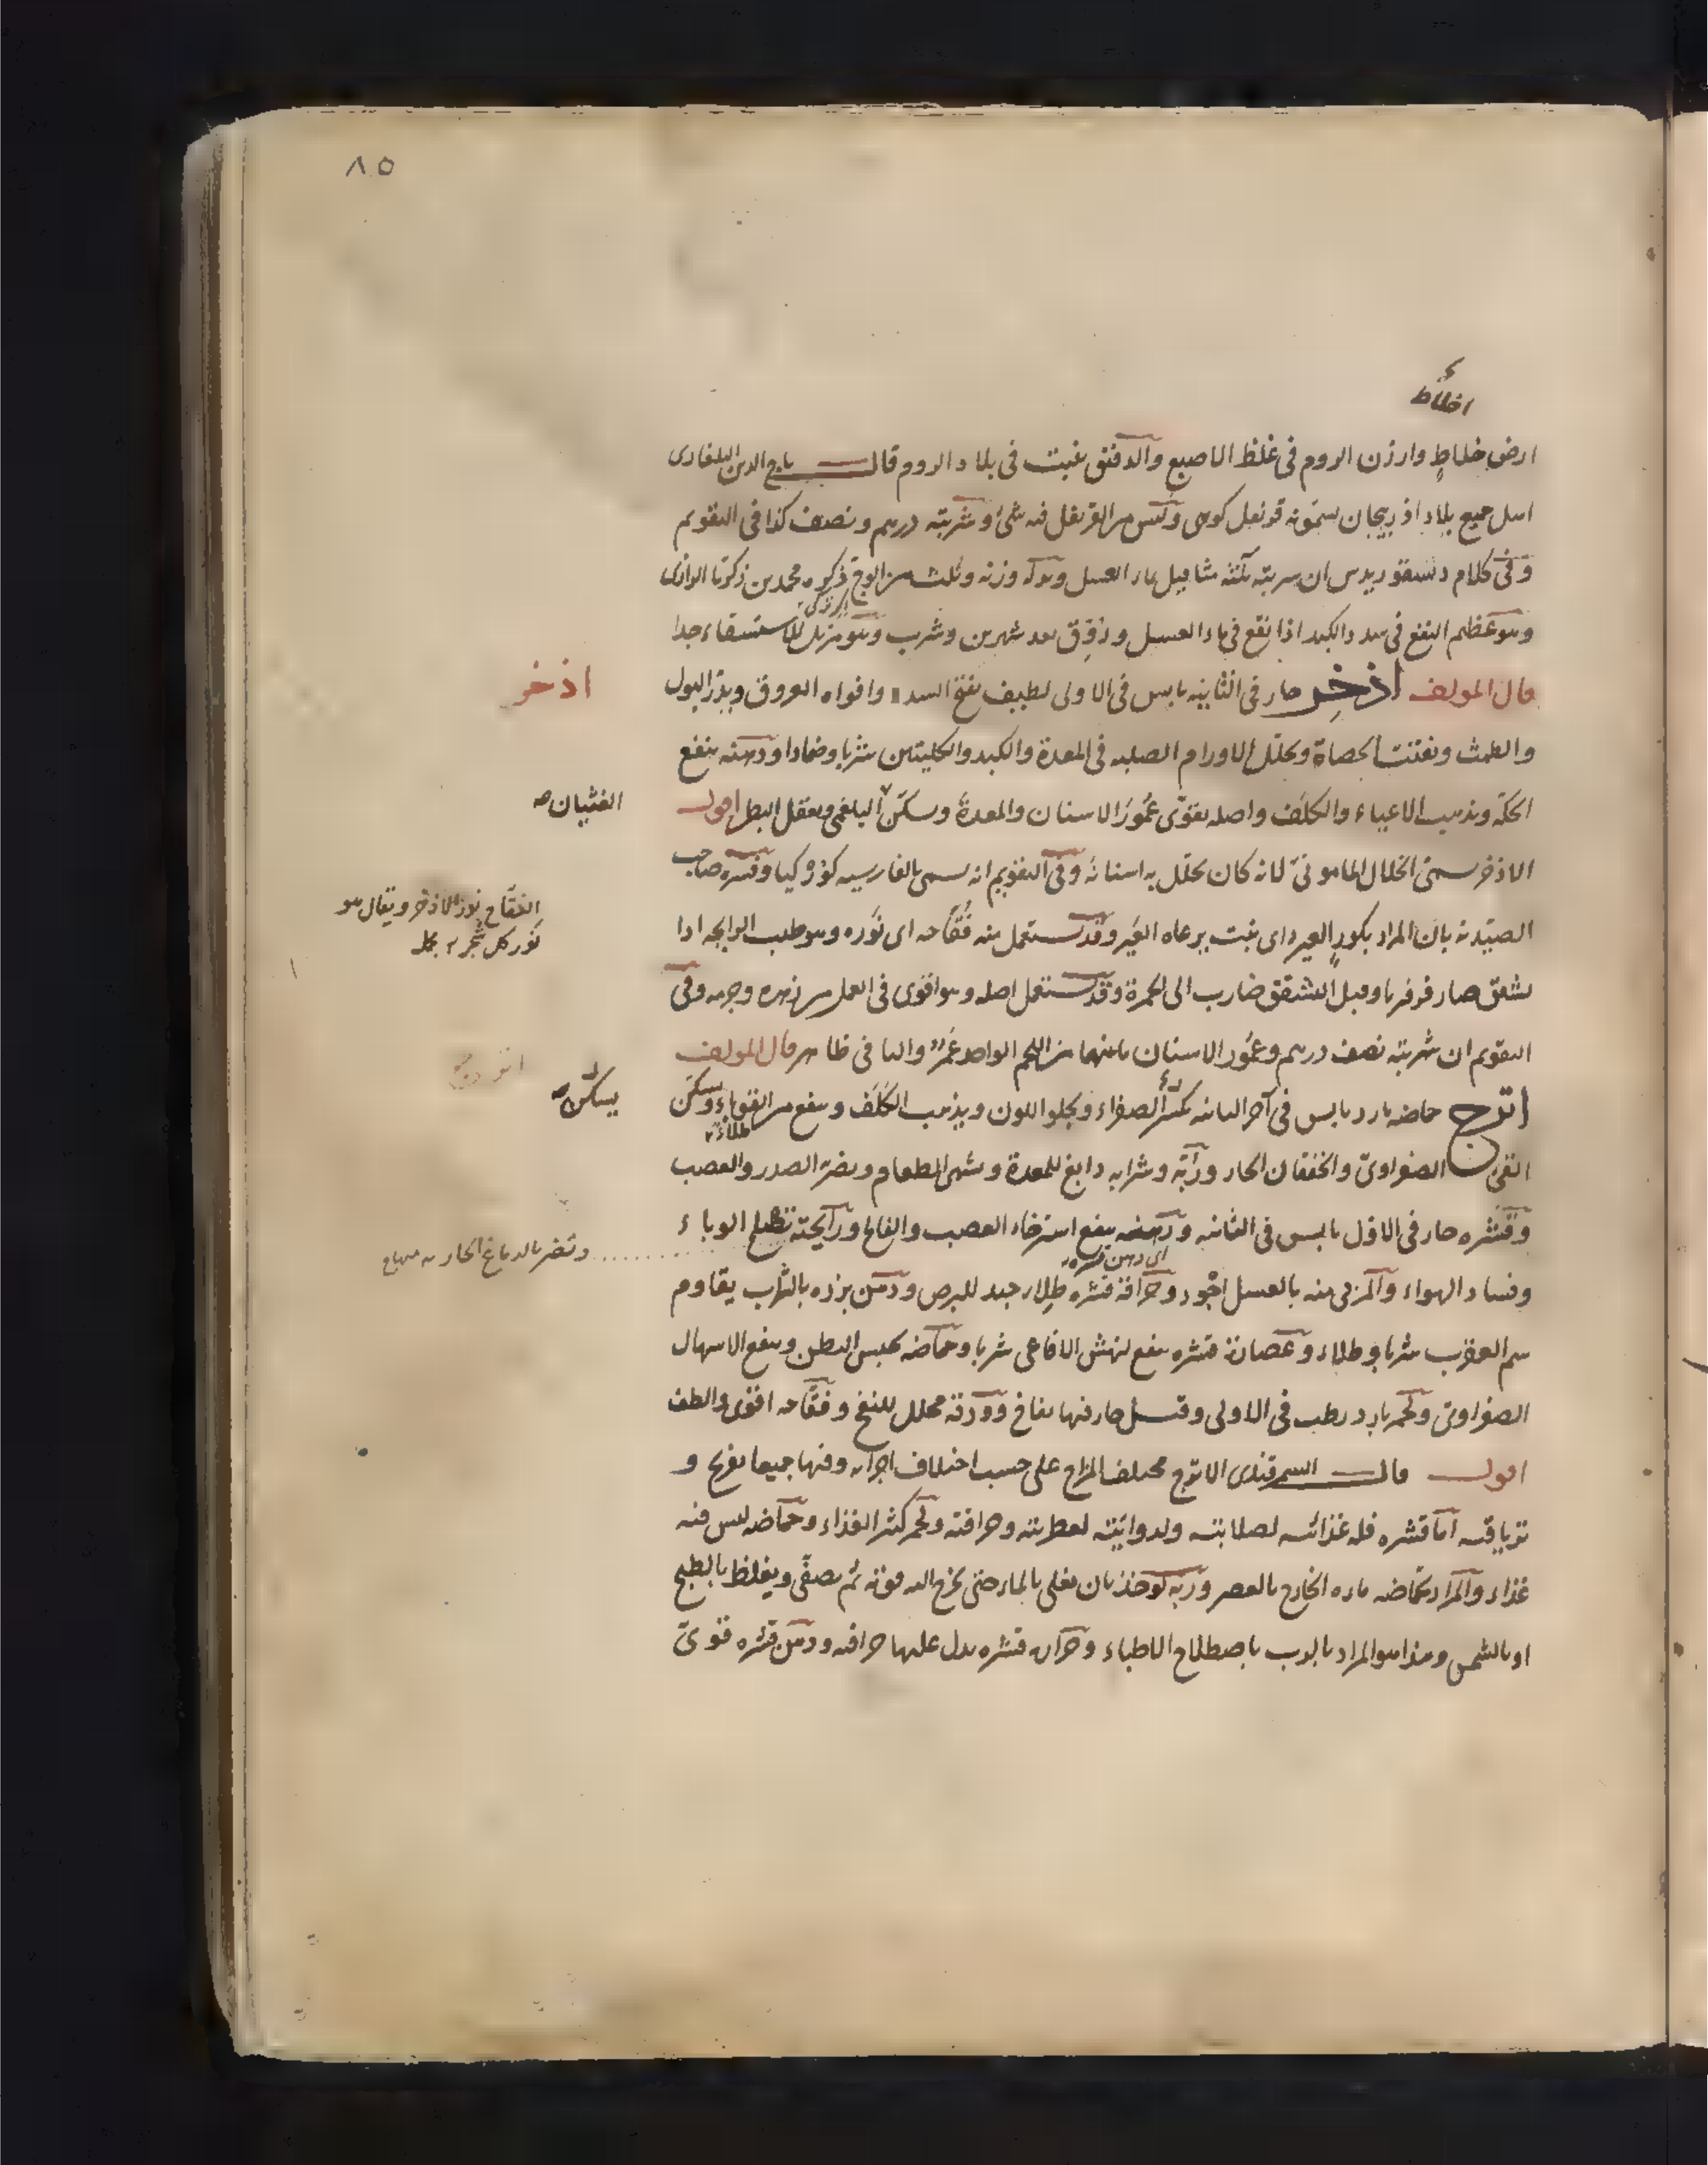 ٨٥
اخلاط
ارض خلاط وارزن الروم فى غلظ الاصبع والدقيق ينبت فى بلاد الروم قال تاج الدين البلغارى
اهل جميع بلاد اذربيجان يسمونه قرنفل كوهى وليس من القرنفل فيه شئ وشربته درهم ونصف كذا فى التقويم
وفى كلام دسقوريدس ان شربته ثلثة مثاقيل بماء العسل وبدله وزنه وثلث من الوج ذكره محمد بن زكريا الرازى
وهو عظيم النفع فى سدد الكبد اذا نقع فى ماء العسل وروق بعد شهرين وشرب وهو مزيل للاستسقاء جدا
قال المولف اذخر حار فى الثانية يابس فى الاولى لطيف يفتح السدد وافواه العروق ويدر البول
اذخر
والطمث ويفتت الحصاة ويحلل الاورام الصلبه فى المعدة والكبد والكليتين شربا وضمادا ودهنه ينفع
الحكة ويذهب الاعياء والكلف واصله يقوى عمور الاسنان والمعدة ويسكن البلغمى ويعقل البطن اقول
الغثيان صح
الاذخر يسمى الخلال المامونى لانه كان يخلل به اسنانه وفى التقويم انه يسمى بالفارسيه كوركيا وفسره صاحب
الفقاح نور الاذخر ويقال هو
نور كل شجرة مجمل
الصيدنه بان المراد بكور العير اى نبت يرعاه العير وقد يستعمل منه فقاحه اى نوره وهو طيب الرايحه اذا
تشقق صار فرفريا وقبل التشقق ضارب الى الحمرة وقد يستعمل اصله وهو اقوى فى العمل من زهره وجرمه وفى
التقويم ان شربته نصف درهم وعمور الاسنان ما بينها من اللحم الواحد عمر والباقى ظاهر قال المولف
اترج
اترج حماضه بارد يابس فى آخر الثانيه يكسر الصفراء ويجلو اللون ويذهب الكلف وينفع من القوباء طلاء ويسكن
يسكن صح
القئ الصفراوى والخفقان الحار وربه وشرابه دابغ للمعدة ويشهى الطعام ويضر الصدر والعصب
وقشره حار فى الاول يابس فى الثانيه ودهنه ينفع استرخاء العصب والفالج ورايحته تصلح الوباء
وتضر بالدماغ الحار منهاج
اى دهن قشره
وفساد الهواء والمربى منه بالعسل اجود وحراقة قشره طلاء جيد للبرص ودهن بزره بالشراب يقاوم
سم العقرب شربا وطلاء وعصارة قشره ينفع لنهش الافاعى شربا وحماضه يحبس البطن وينفع الاسهال
الصفراوى ولحمه بارد رطب فى الاولى وقيل حار فيها نفاخ وورقه محلل للنفخ وفقاحه اقوى والطف
اقول قال السمرقندى الاترج مختلف المزاج على حسب اختلاف اجزائه وفيها جميعا تفريح و
ترياقيه اما قشره فله غذائيه لصلابته ولدوائيته لعطريته وحرافته ولحمه كثير الغذاء وحماضه ليس فيه
غذاء والمراد بحماضه ماءه الخارج بالعصر وربه يوخذ بان يغلى بالماء حتى يخرج اليه قوته ثم يصفى ويغلظ بالطبخ
او بالشمس وهذا هو المراد بالرب باصطلاح الاطباء وحرارة قشره يدل عليها حرافته ودهن قشره قوى